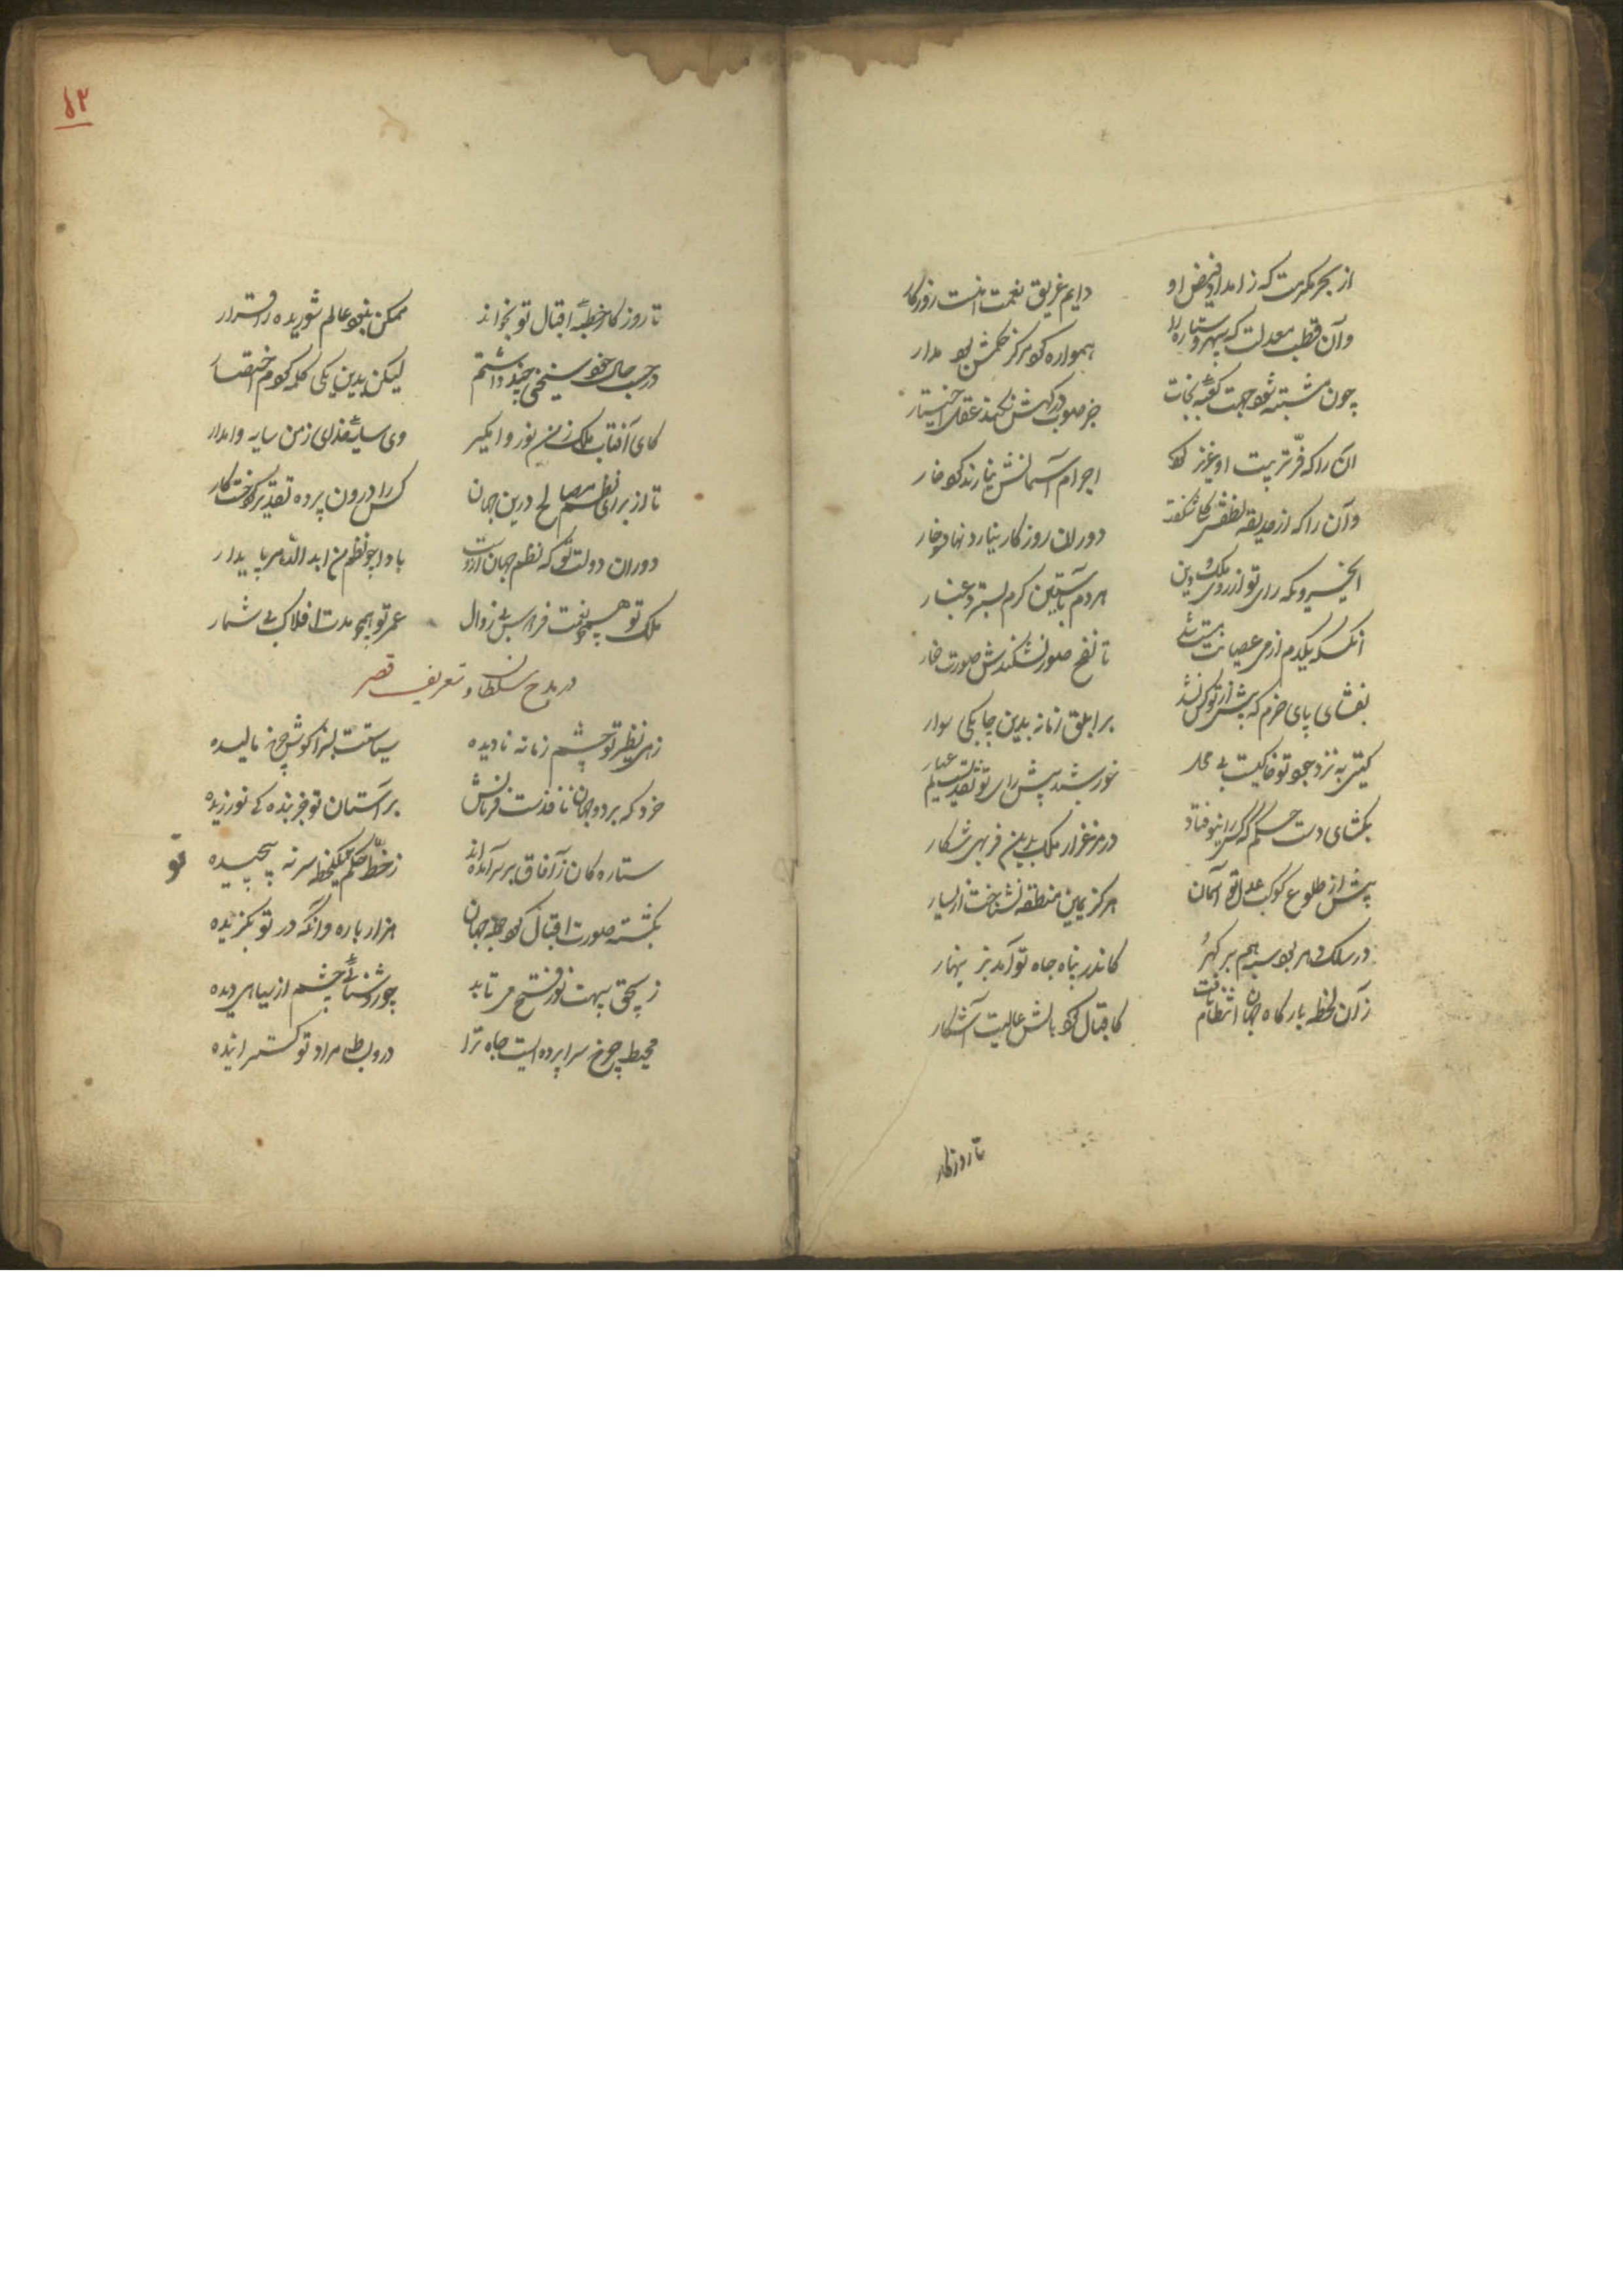 از بحر مکرمت که ز امداد فیض او دایم غریق نعمت اوست روزکار
وآن قطب معدلت که سپهر و ستاره را همواره کرد مرکز حکمش بود مدار
چون مشتبه شود جهت کعبه نجات جز صوب درکهش نکند عقل اختیار
آن را که فرّ تربیت او عزیز کرد اجرام آسمانش نیارند کرد خار
وآن را که از حدیقه لطفش کل شکفت دوران روزکار نیارد نهاد خار
ای خسروی که رای تو از روی ملک و دین هر دم بآستین کرم بسترد غبار
آنکس که یکدم از می عصیانت مست شد تا نفخ صور نشکندش صورت خمار
بفشای پای حزم که پیش از تو کس نشد بر ابلق زمانه بدین چابکی سوار
کیتی به نزد جود تو خاکیست بی محل خورشید پیش رای تو نقدیست کم عیار
بکشای دست حکم که کس را نیوفتاد در مرغزار ملک بدین فربهی شکار
پیش از طلوع کوکب عدل تو آسمان هرکز یمین منطقه نشناخت از یسار
در سلک دهر بود سراسیمه هر کهر کاندر پناه جاه تو آمد بزینهار
زان لحظه بارکاه جهان انتظام یافت کاقبال کرد بالش عالیت آشکار
تا روزکار
۸۳
تا روز کار خطبه اقبال تو بخواند ممکن نبود عالم شوریده را قرار
در حسب حال خود سخنی چند داشتم لیکن بدین یکی کلمه کردم اختصار
کای آفتاب ملک ز من نور وامکیر وی سایه خدای ز من سایه وامدار
تا از برای نظم مصالح درین جهان کس را درون پرده تقدیر نیست کار
دوران دولت تو که نظم جهان ازوست بادا چو نظم من ابد الدهر پایدار
ملک تو همچو نعمت فردوس بی زوال عمر تو همچو مدت افلاک بی شمار
در مدح سلطان و تعریف قصر
زهی نظیر تو چشم زمانه نادیده سیاستت بسزا کوش چرخ مالیده
خرد که بر دو جهان نافذست فرمانش بر آستان تو جز بندکی نورزیده
ستاره کان ز آفاق بر سر آمده اند ز خطّ حکم تو یک لحظه سر نه پیچیده
تو
بکشته صورت اقبال کرد جمله جهان هزار باره وانکه در تو بکزیده
ز پیچق سیهت نور فتح می تابد چو روشنائی چشم از سیاهی دیده
محیط چرخ سراپرده ایست جاه ترا درو بساط مراد تو کسترانیده